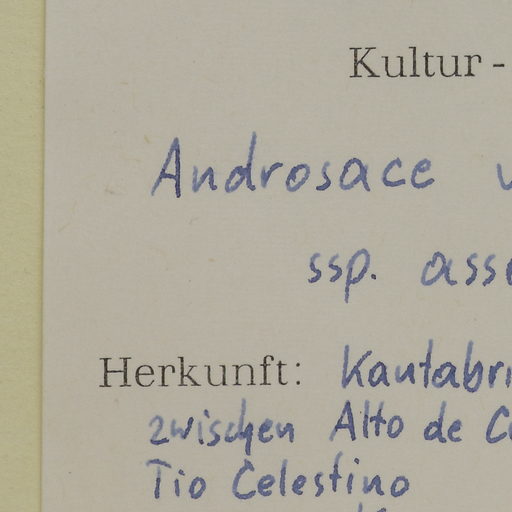 Kultur -
Androsace v
ssp. asse
Herkunft: Kantabri
zwischen Alto de Ca
Tio Celestino